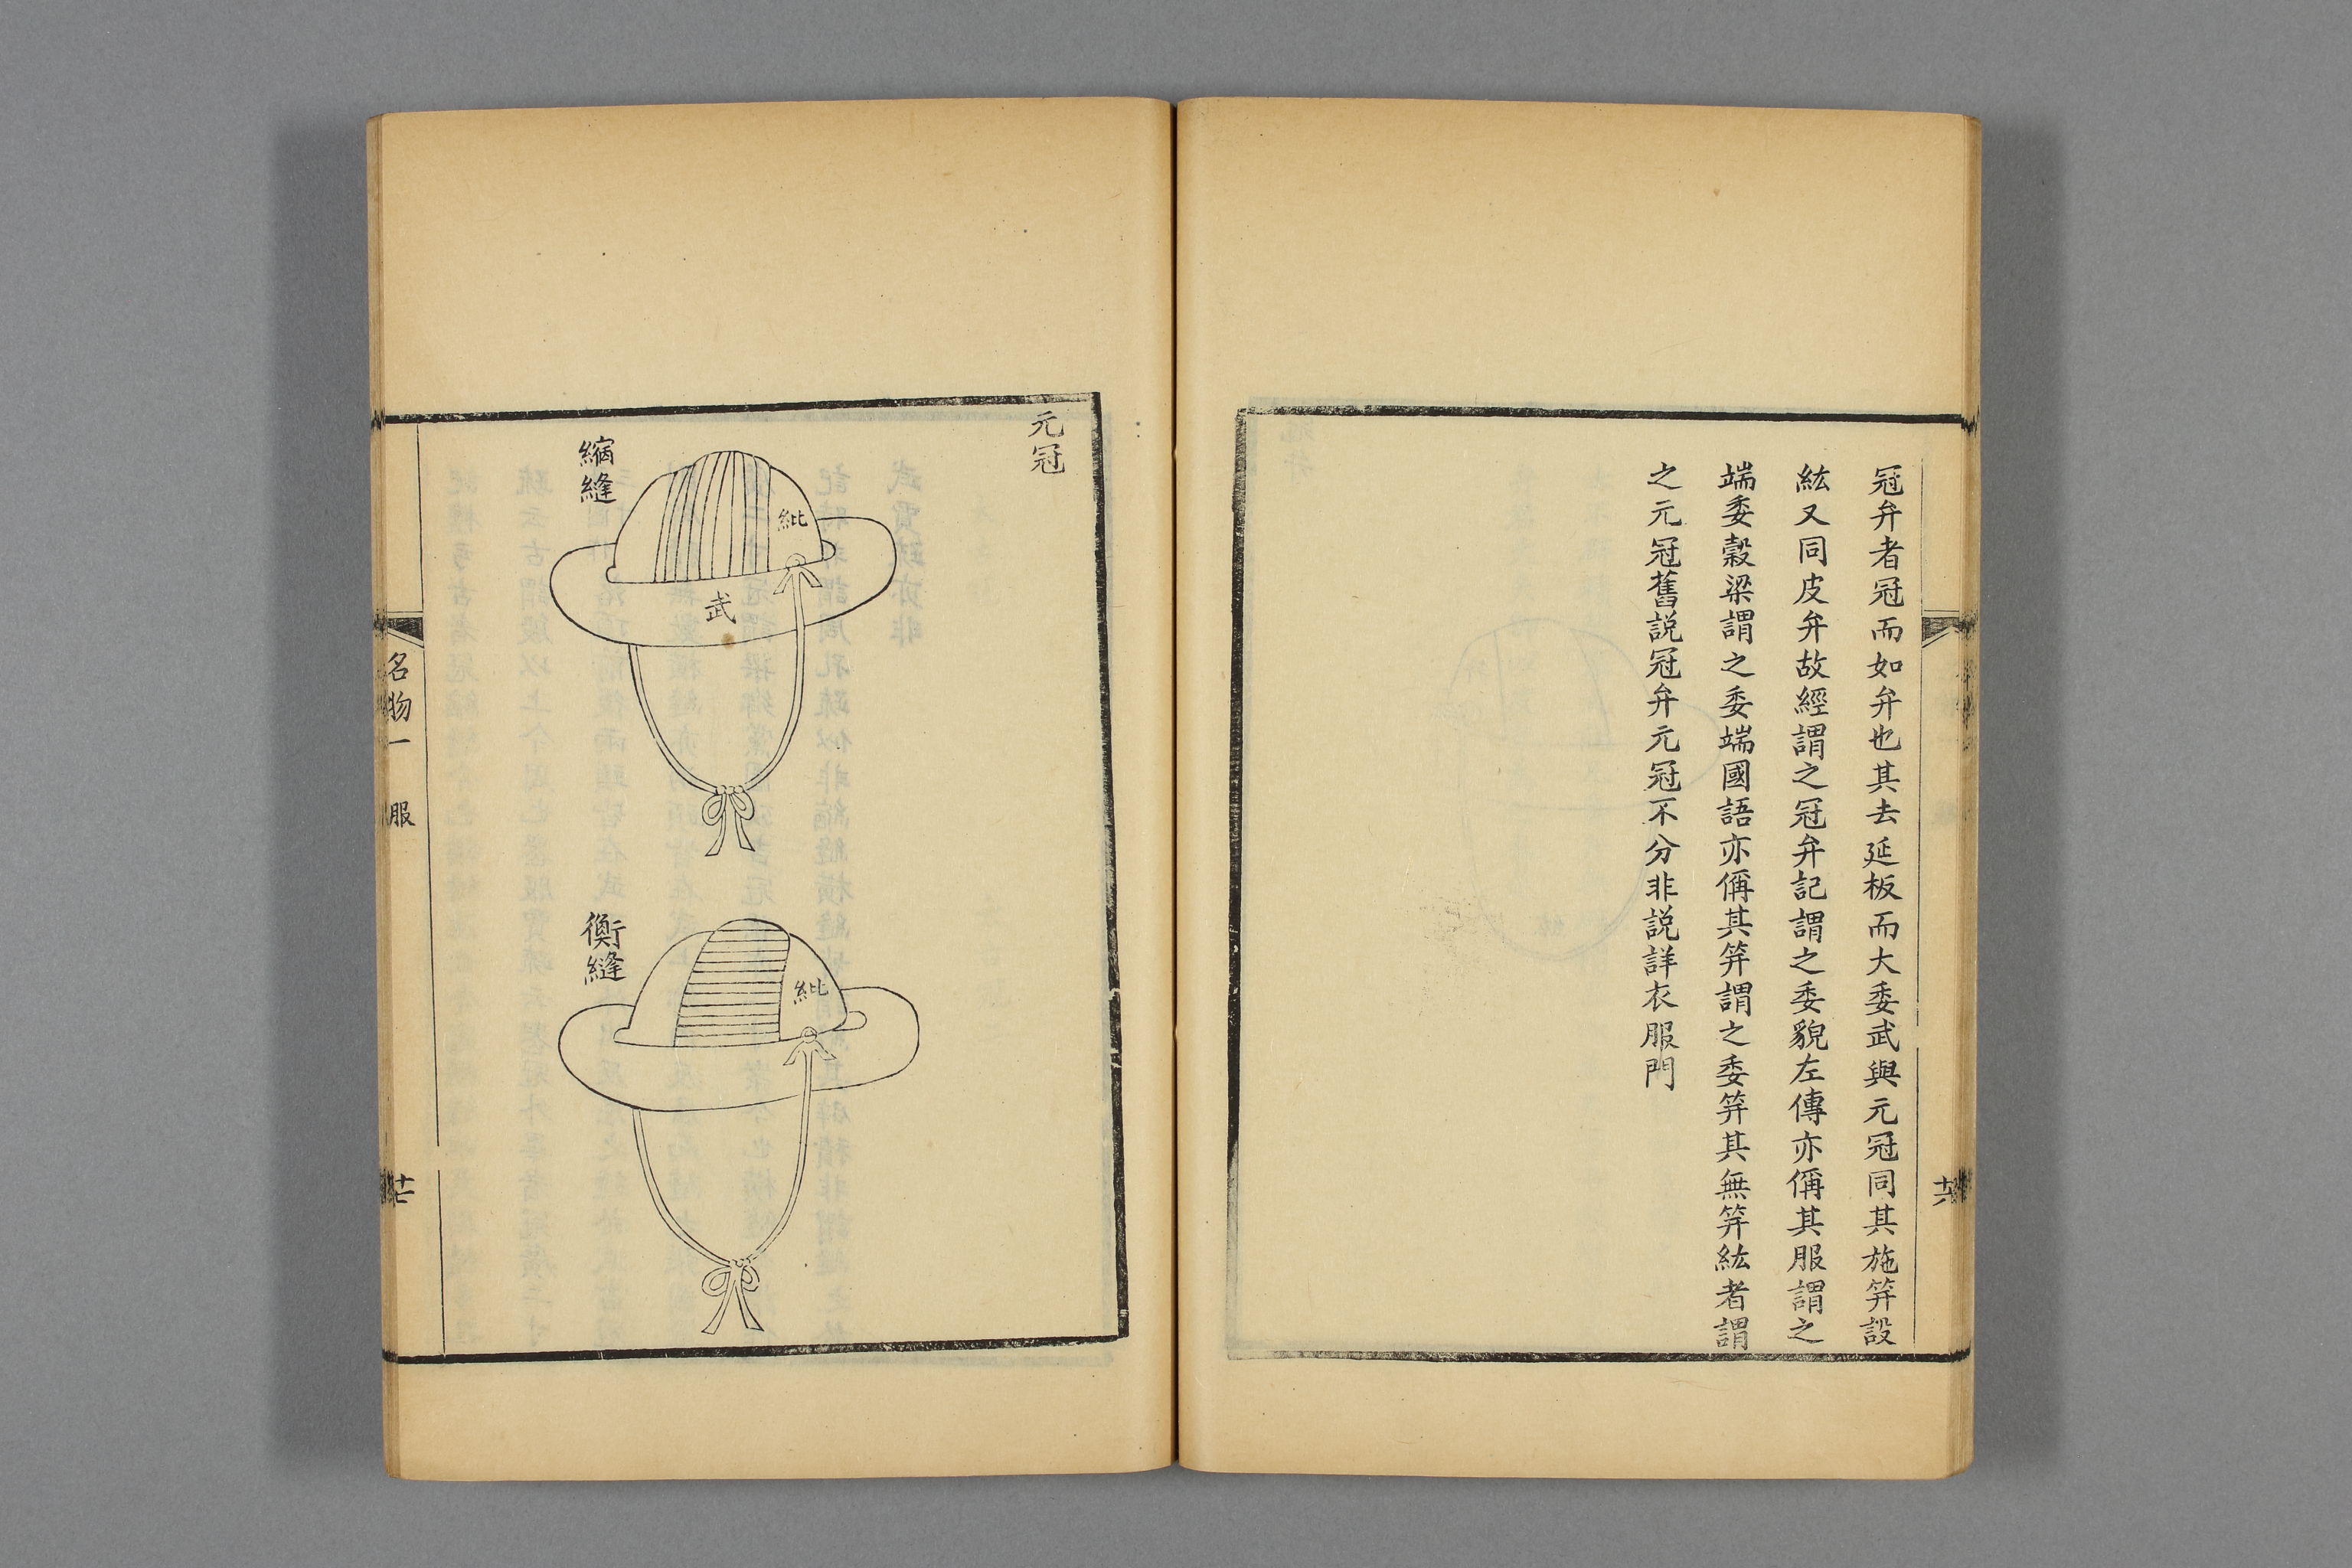 冠弁者冠而如弁也其去延板而大委武與元冠同其施笄設
紘又同皮弁故經謂之冠弁記謂之委貌左傳亦偁其服謂之
端委穀梁謂之委端國語亦偁其笄謂之委笄其無笄紘者謂
之元冠舊説冠弁元冠不分非説詳衣服門
元冠
縮縫
紕
武
衡縫
紕
名物一 服
十七